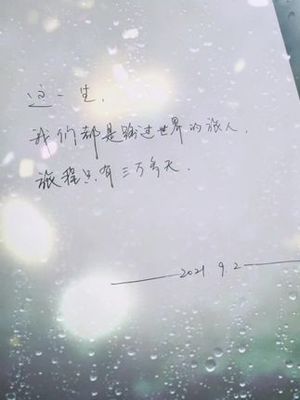 这一生，
我们都是路过世界的旅人，
旅程只有三万多天．
2021 9.2